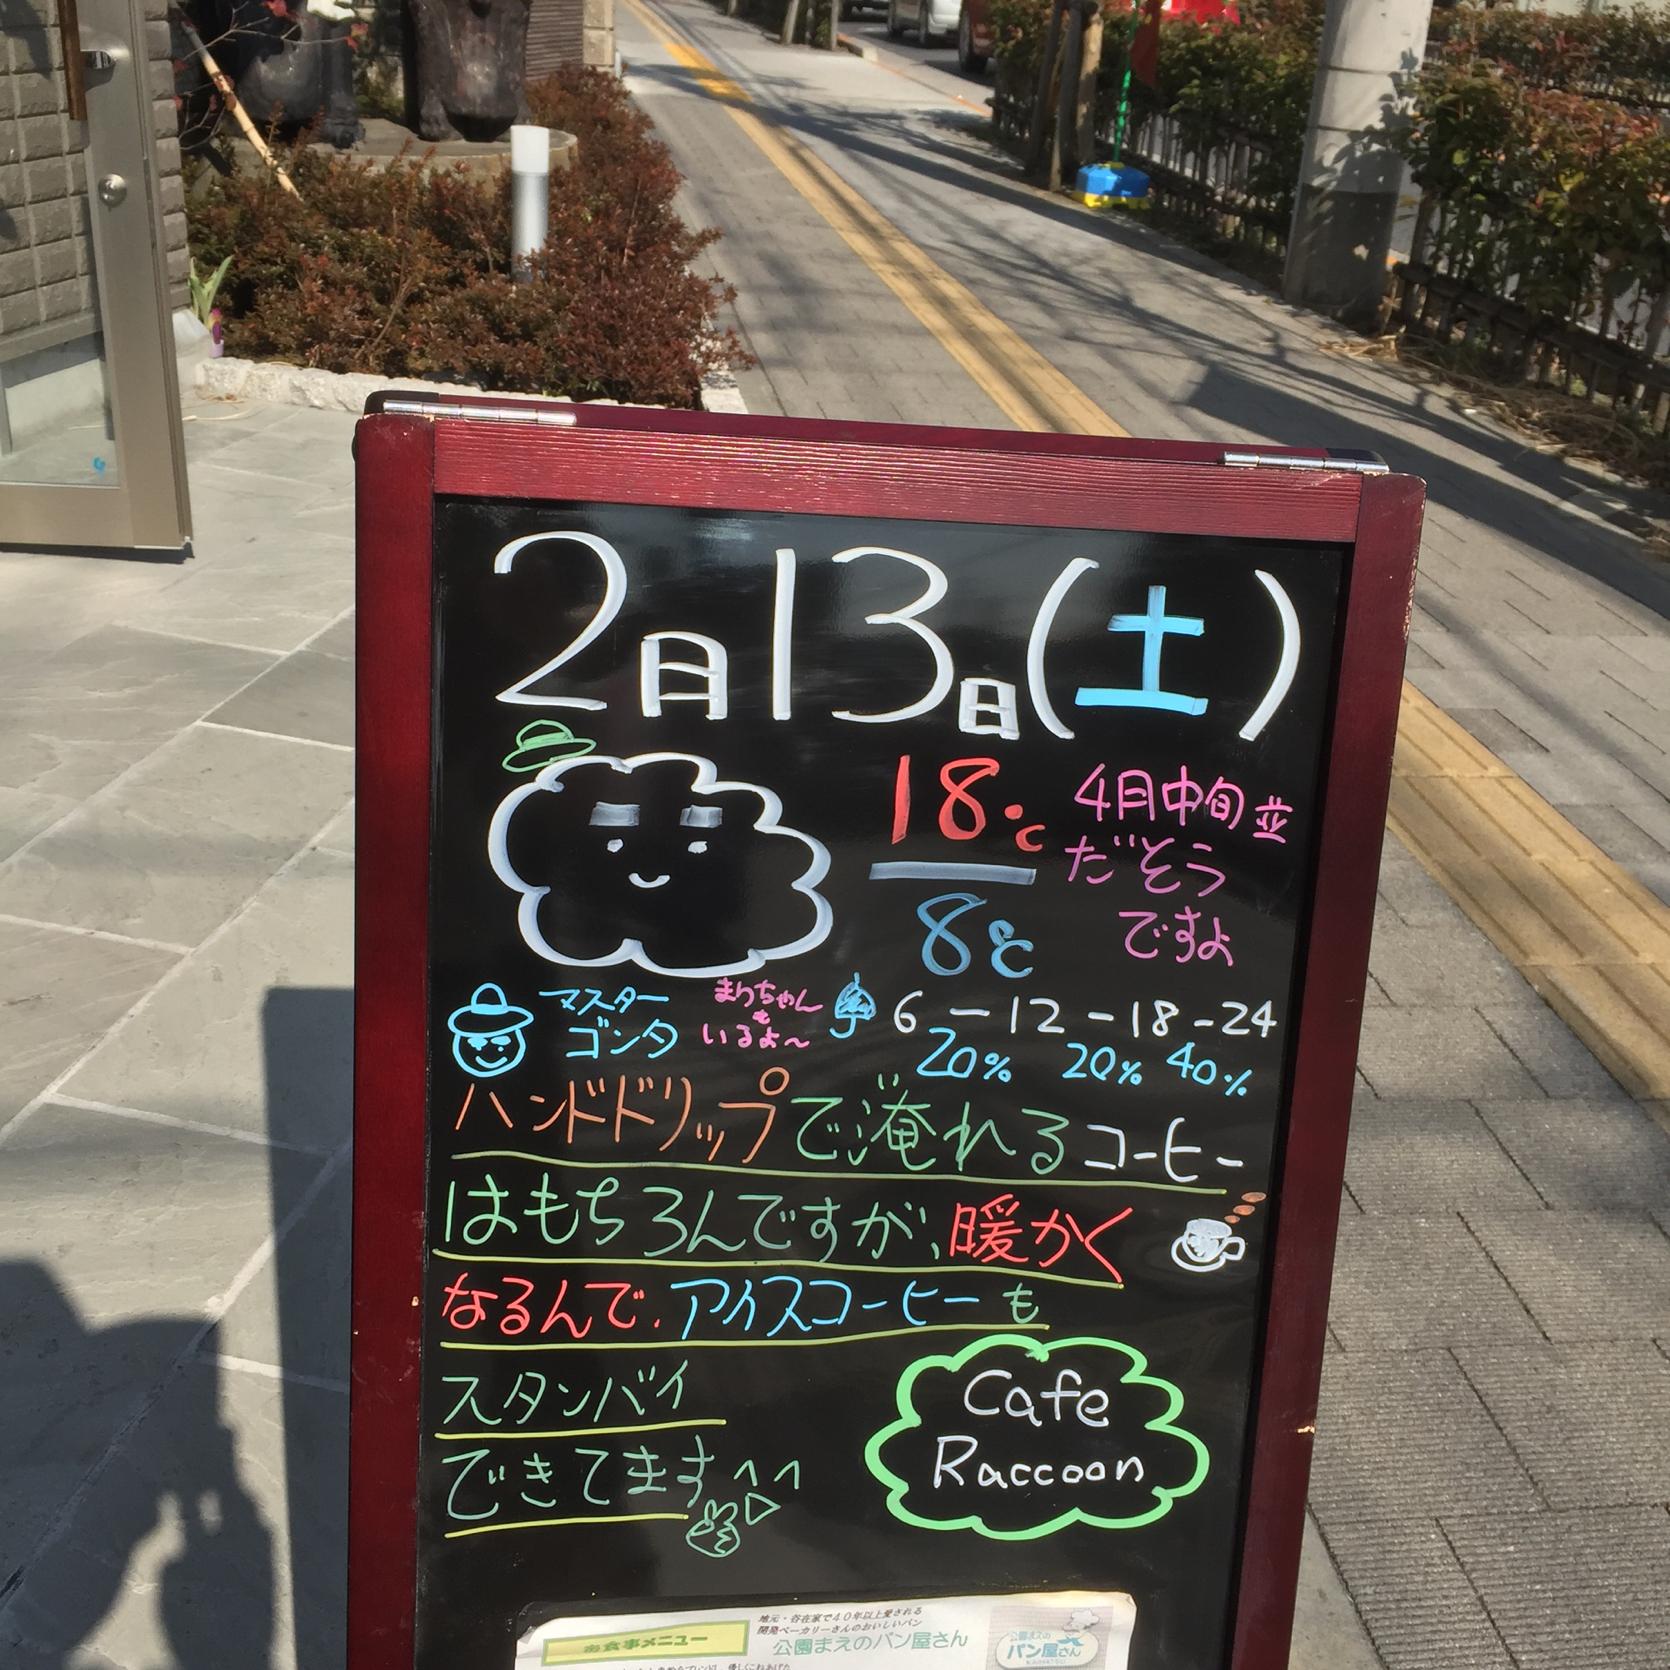 2月13日(土)
18℃
8℃
4月中旬並
だそう
ですよ
マスター
ゴンタ
まりちゃん
も
いるよ〜
6 — 12 - 18 - 24
20% 20% 40%
ハンドドリップで淹れるコーヒー
はもちろんですが、暖かく
なるんで、アイスコーヒーも
スタンバイ
できてます^^
Cafe
Raccoon
お食事メニュー
地元・谷在家で40年以上愛される
開発ベーカリーさんのおいしいパン
公園まえのパン屋さん
公園まえの
パン屋さん